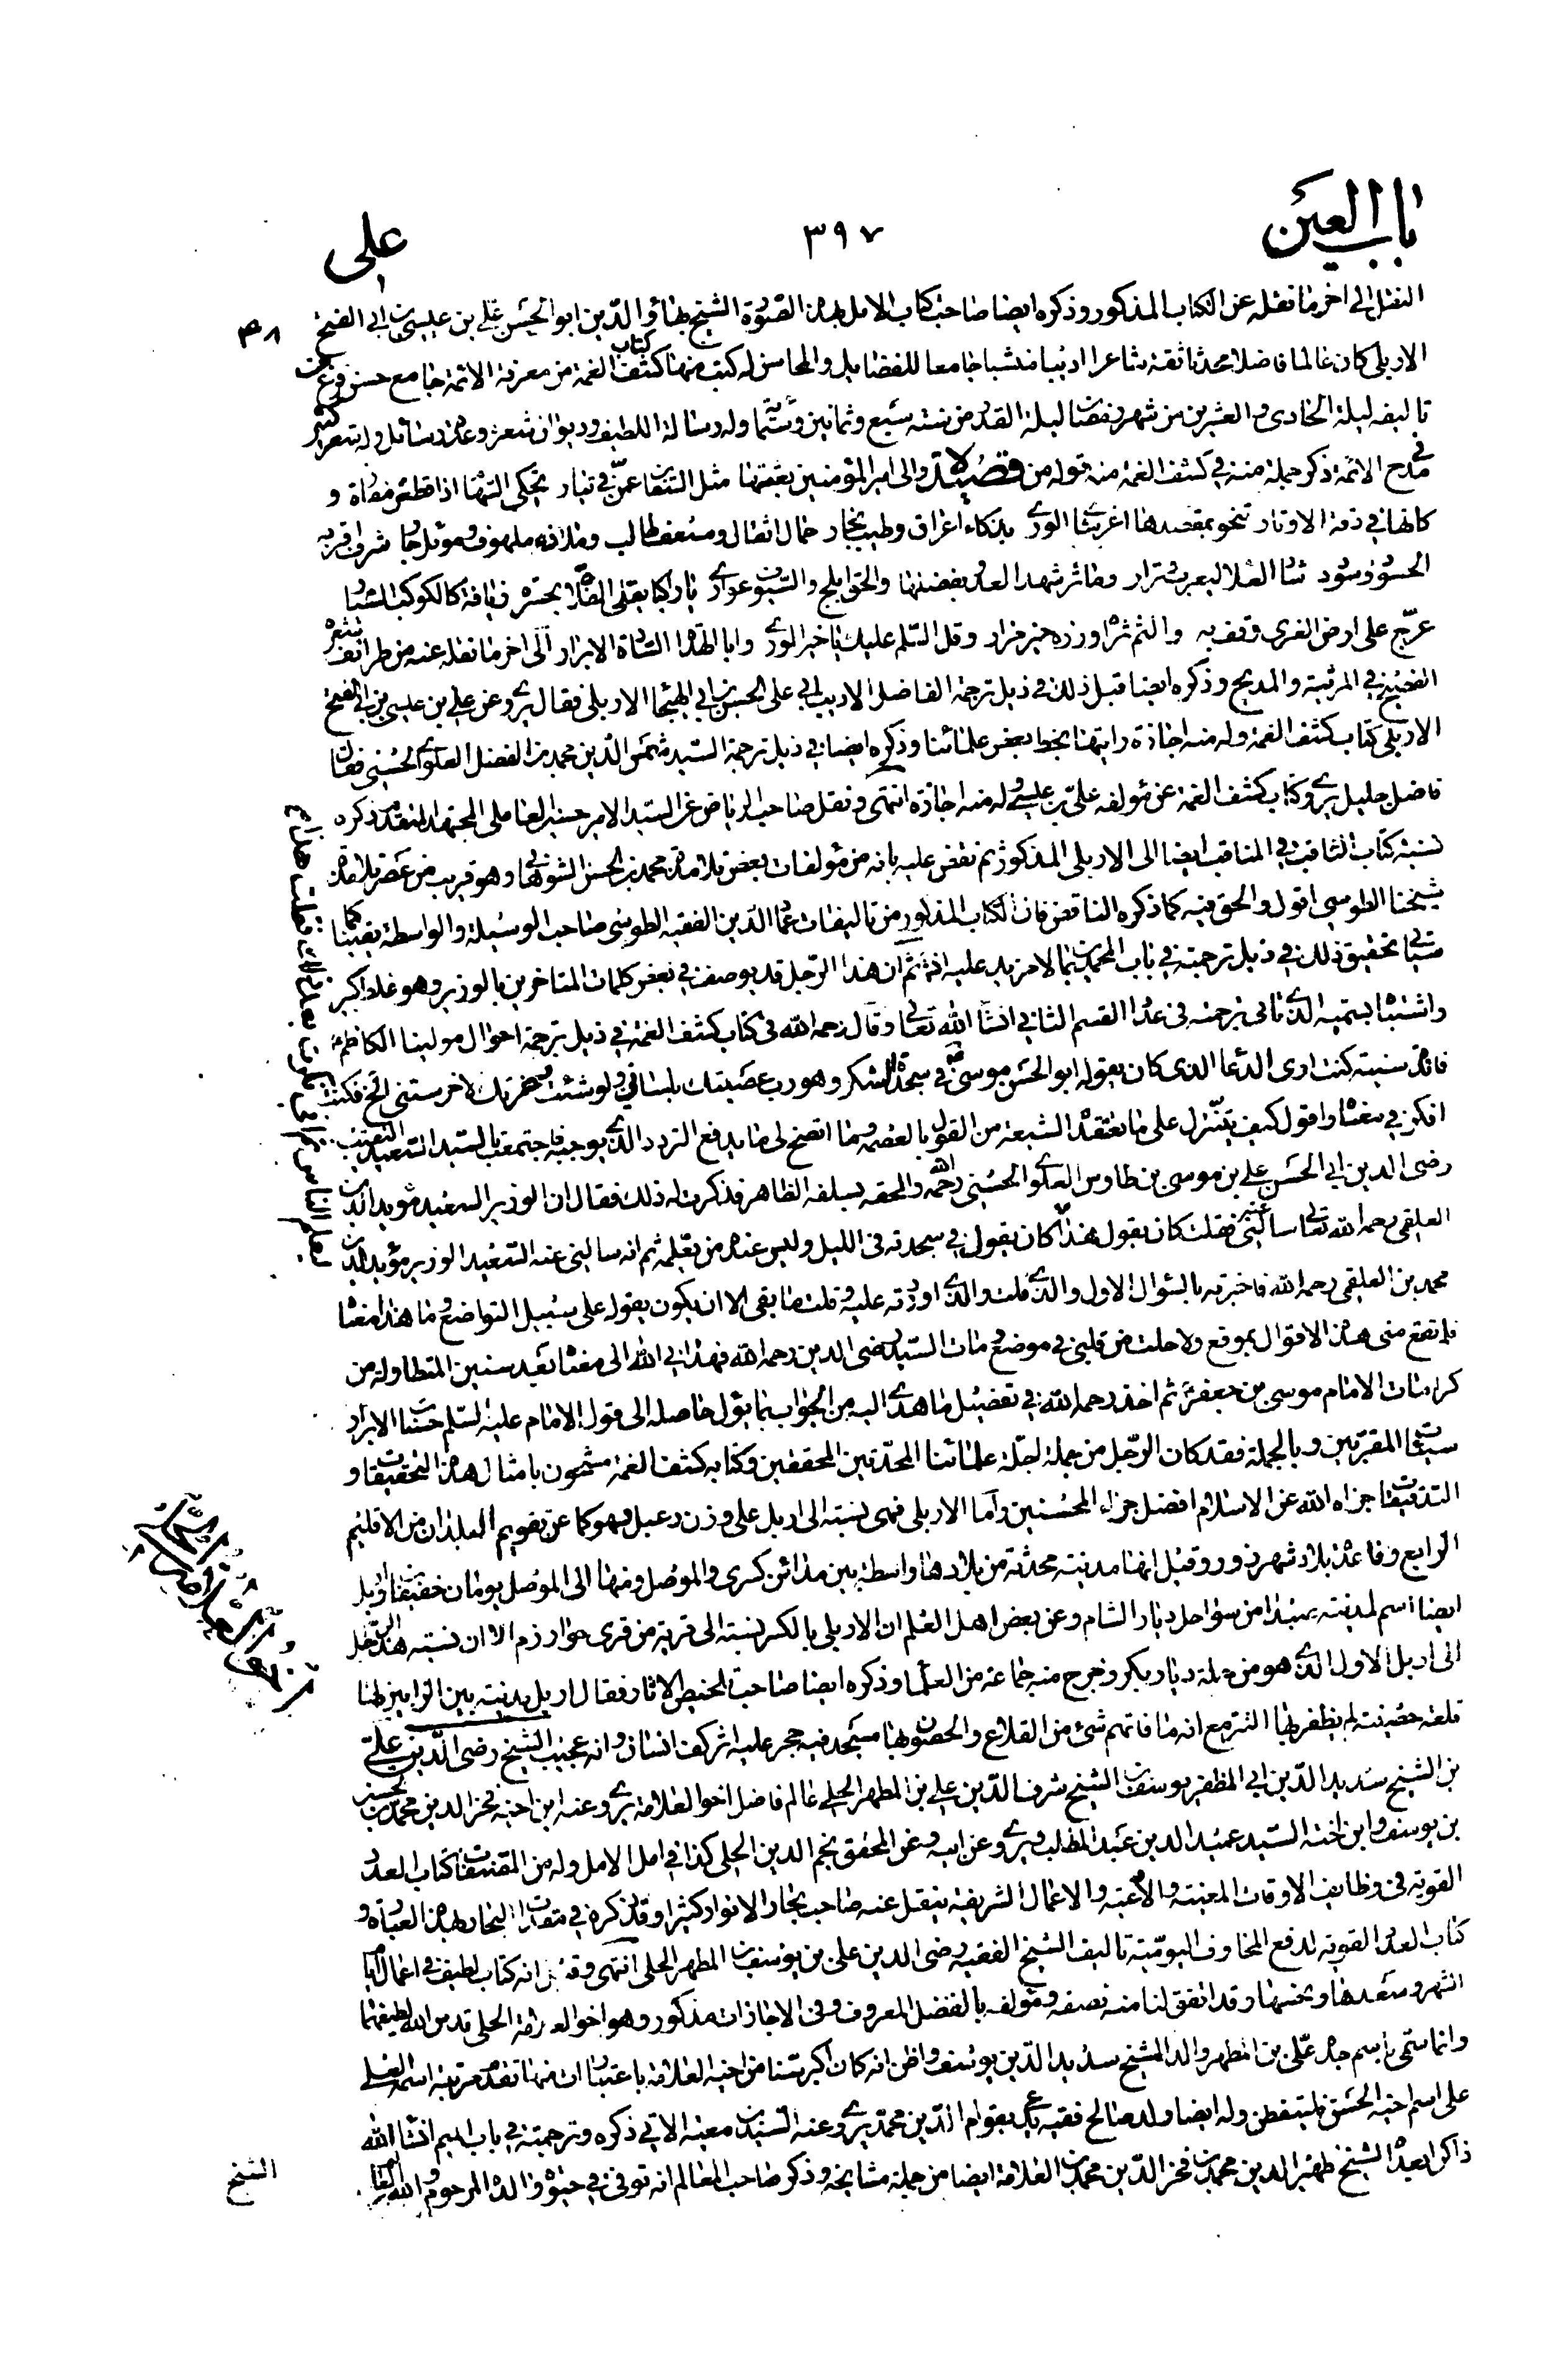 باب العين
٣٩٧
علی
النقل الى اخر ما نقله عن الكتاب المذكور وذكره ايضا صاحب كتاب الامل بهذه الصورة الشيخ بهاؤ الدين ابو الحسن علي بن عيسى بن ابي الفتح
الاربلي كان عالما فاضلا محدثا ثقة شاعرا اديبا منشيا جامعا للفضايل والمحاسن له كتب منها كتاب كشف الغمة من معرفة الائمة جامع حسن فرغ من
تاليفه ليلة الحادى والعشرين من شهر رمضان ليلة القدر من سنة سبع وثمانين وستمأة وله رسالة الطيف وديوان شعر وعدة رسائل وله شعر كثير
في مدح الائمة ذكر جملة منه في كشف الغمة منه قوله من قصيدة والى امير المؤمنين بعثتها مثل السفاين عمن في تيار تحكى السهام اذا قطعن مفازة و
كانها في دقة الاوتار تنحو بمقصدها اغر شأى الورى بذكاء اعراق وطيب نجار حمال اثقال ومسعف طالب وملاذ ملهوف وموئل جار شرف اقر به
الحسود وسودد شاد العلا ليعرب ونزار ومآثر شهد العدو بفضلها والحق ابلج والسيوف عوارى يا راكبا يفلى الفلاة بجسرة زيافة كالكوكب السيار
عرج على ارض الغرى وقف به والثم ثراه وزره خير مزار وقل السلم عليك يا خير الورى وابا الهداة السادة الابرار الى اخر ما نقله عنه من طرائف شعره
الفصيح في المرثية والمديح وذكره ايضا قبل ذلك في ذيل ترجمة الفاضل الاديب ابي على الحسين بن ابي الهيجا الاربلي فقال يروى عن علي بن عيسى بن ابي الفتح
الاربلي كتاب كشف الغمة وله منه اجازة رايتها بخط بعض علمائنا وذكره ايضا في ذيل ترجمة السيد شمس الدين محمد بن الفضل العلوى الحسيني فقال
فاضل جليل يروى كتاب كشف الغمة عن مؤلفه علي بن عيسى وله منه اجازة انتهى ونقل صاحب الرياض عن السيد الامير حسين العاملى المجتهد المتقدم ذكره
نسبة كتاب الثاقب في المناقب ايضا الى الاربلى المذكور ثم نقض عليه بانه من مؤلفات بعض تلامذة محمد بن الحسن الشوهانى وهو قريب من عصر تلامذة
شيخنا الطوسى اقول والحق فيه كما ذكره الناقض فان الكتاب المذكور من تاليفات عماد الدين الفقيه الطوسى صاحب الوسيلة والواسطة يقينا كما
سيأتي تحقيق ذلك في ذيل ترجمته في باب المحمدين بما لا مزيد عليه انش ثم ان هذا الرجل قد يوصف في بعض كلمات المتاخرين بالوزير وهو غلط اكبر
واشتباه بسميه الذى تاتى ترجمته في عداد القسم الثاني انشاء الله تعالى وقال رحمه الله في كتاب كشف الغمة في ذيل ترجمة احوال مولينا الكاظم
فائدة سنية كنت ارى الدعا الذى كان يقوله ابو الحسن موسى في سجدة الشكر وهو رب عصيتك بلساني ولو شئت وعزتك لاخرستنى الخ فكنت
افكر في معناه واقول كيف يتنزل على ما تعتقده الشيعة من القول بالعصمة وما اتضح لى ما يدفع التردد الذى يوجبه فاجتمعت بالسيد السعيد النقيب
رضى الدين ابي الحسن علي بن موسى بن طاوس العلوى الحسني رحمه الله والحقه بسلفه الطاهر فذكرت له ذلك فقال ان الوزير السعيد مؤيد الدين
العلقمى رحمه الله تعالى سألني عنه فقلت كان يقول هذا كان يقول في سجدته في الليل وليس عنده من يعلمه ثم انه سالنى عنه السعيد الوزير مؤيد الدين
محمد بن العلقمى رحمه الله فاخبرته بالسؤال الاول والذى قلت والذى اوردته عليه وقلت ما بقى الا ان يكون يقوله على سبيل التواضع وما هذا معناه
فلم تقع منى هذه الاقوال بموقع ولا حلت من قلبي في موضع ومات السيد رضى الدين رحمه الله فهداني الله الى معناه بعد سنين المتطاولة من
كرامات الامام موسى بن جعفر ثم اخذ رحمه الله في تفصيل ما هدى اليه من الجواب بما يؤل حاصله الى قول الامام عليه السلم حسنات الابرار
سيئات المقربين وبالجملة فقد كان الرجل من جملة اجلة علمائنا المحدثين المحققين وكتابه كشف الغمة مشحون بامثال هذه التحقيقات و
التدقيقات جزاه الله عن الاسلام افضل جزاء المحسنين واما الاربلى فهى نسبة الى اربل على وزن دعبل وهو كما عن تقويم البلدان من الاقليم
الرابع وقاعدة بلاد شهرزور وقيل انها مدينة محدثة من بلادها واسطة بين مدائن كسرى والموصل ومنها الى الموصل يومان خفيفان واربل
ايضا اسم لمدينة بصيدا من سواحل ديار الشام وعن بعض اهل العلم ان الاربلى بالكسر نسبة الى قرية من قرى خوارزم الا ان نسبة هذا الرجل
الى اربل الاول الذى هو من جملة ديار بكر وخرج منه جماعة من العلماء وذكره ايضا صاحب تلخيص الاثار فقال اربل مدينة بين الزابين لها
قلعة حصينة لم يظفر بها التتر مع انه ما فاتهم شئ من القلاع والحصون وبها مسجد فيه حجر عليه اثر كف انسان وانه عجيب الشيخ رضى الدين علي
بن الشيخ سديد الدين ابي المظفر يوسف بن الشيخ شرف الدين علي بن المطهر الحلي عالم فاضل اخو العلامة يروى عنه ابن اخيه فخر الدين محمد بن الحسن
بن يوسف وابن اخته السيد عميد الدين عبد المطلب ويروى عن ابيه وعن المحقق نجم الدين الحلي كذا في امل الامل وله من المصنفات كتاب العدد
القوية في وظايف الاوقات المعينة والادعية والاعمال الشريفة ينقل عنه صاحب بحار الانوار كثيرا وقد ذكره في مقدمات البحار بهذه العبارة و
كتاب العدد القوية لدفع المخاوف اليومية تاليف الشيخ الفقيه رضى الدين على بن يوسف بن المطهر الحلى انتهى وقيل انه كتاب لطيف في اعمال ايام
الشهر وسعدها ونحسها وقد اتفق لنا منه نصفه ومؤلفه بالفضل المعروف وفى الاجازات مذكور وهو اخو العلامة الحلى قدس الله لطيفهما
وانما سمى باسم جده علي بن المطهر والد الشيخ سديد الدين يوسف واظن انه كان اكبر سنا من اخيه العلامة باعتبارات منها تقدم مرتبة اسمه العلى
على اسم اخيه الحسن فليتفطن وله ايضا ولد صالح فقيه يدعى بقوام الدين محمد يروى عنه السيد بن معية الاتي ذكره وترجمته في باب الميم انشاء الله
ذاكرا بعده الشيخ ظهير الدين محمد بن فخر الدين محمد بن العلامة ايضا من جملة مشايخه وذكر صاحب المعالم انه توفى في حيوة والده المرحوم والله العالم
الشيخ